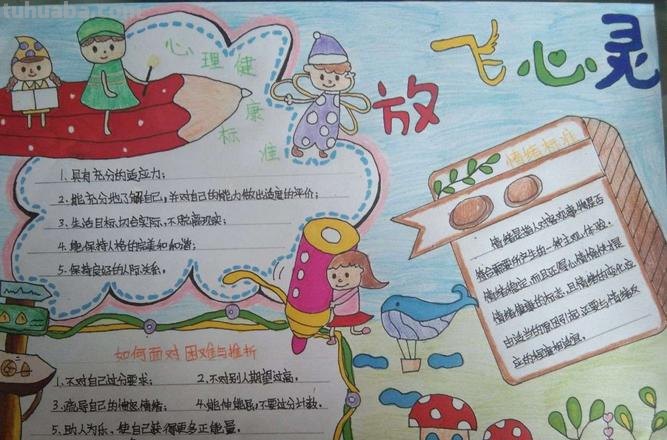 tuhuaba.com
放飞心灵
心理健
康
标准
1.具有充分的适应力；
2.能充分地了解自己，并对自己的能力做出适度的评价；
3.生活目标切合实际，不脱离现实；
4.能保持人格的完美和和谐；
5.保持良好的人际关系。
情绪标准
情绪是指人对客观事物是否
符合需要所产生的一般主观体验。
情绪稳定，而且还是心情愉快是
情绪健康的标志，且情绪的变化应
由适当的原因引起，还要与情绪反
应的程度相适宜。
如何面对困难与挫折
1.不对自己过分要求；
2.不对别人期望过高。
3.疏导自己的愤怒情绪；
4.能伸能屈，不要过分计较。
5.助人为乐，使自己获得更多正能量。